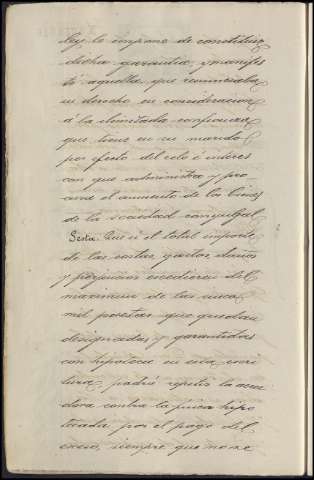 ley le impone de constituir
dicha garantia, y manifes
tó aquella, que renunciaba
su derecho en consideracion
á la ilimitada confianza
que tiene en su marido
por efecto del celo é interes
con que administra y pro
cura el aumento de los bienes
de la sociedad conyugal.
Sesta. Que si el total importe
de las costas, gastos, daños
y perjuicios escediere del
maximum de las cinco
mil pesetas que quedan
designadas y garantidas
con hipoteca en esta escri
tura, podrá repetir la acree
dora contra la finca hipo
tecada por el pago del
exceso, siempre que no se